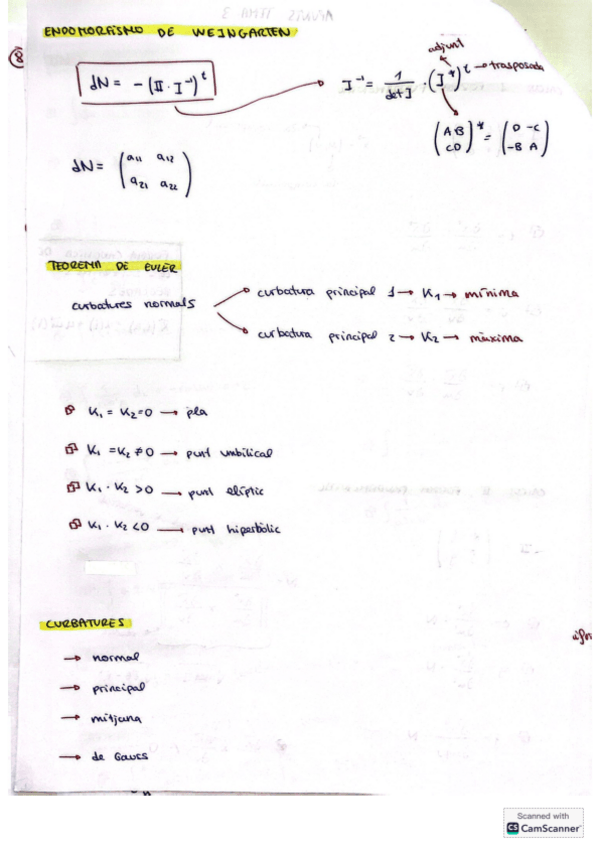 ENDOMORFISMO DE WEINGARTEN
8
dN = - (II · I⁻¹)ᵗ
I⁻¹ = 1/det I · (I*)ᵗ → trasposada
adjunt
(A B / C D)* = (D -C / -B A)
dN = (a₁₁ a₁₂ / a₂₁ a₂₂)
TEOREMA DE EULER
curbatures normals
curbatura principal 1 → K₁ → mínima
curbatura principal 2 → K₂ → màxima
K₁ = K₂ = 0 → pla
K₁ = K₂ ≠ 0 → punt umbilical
K₁ · K₂ > 0 → punt el·líptic
K₁ · K₂ < 0 → punt hiperbòlic
CURBATURES
→ normal
→ principal
→ mitjana
→ de Gauss
Scanned with
CS CamScanner